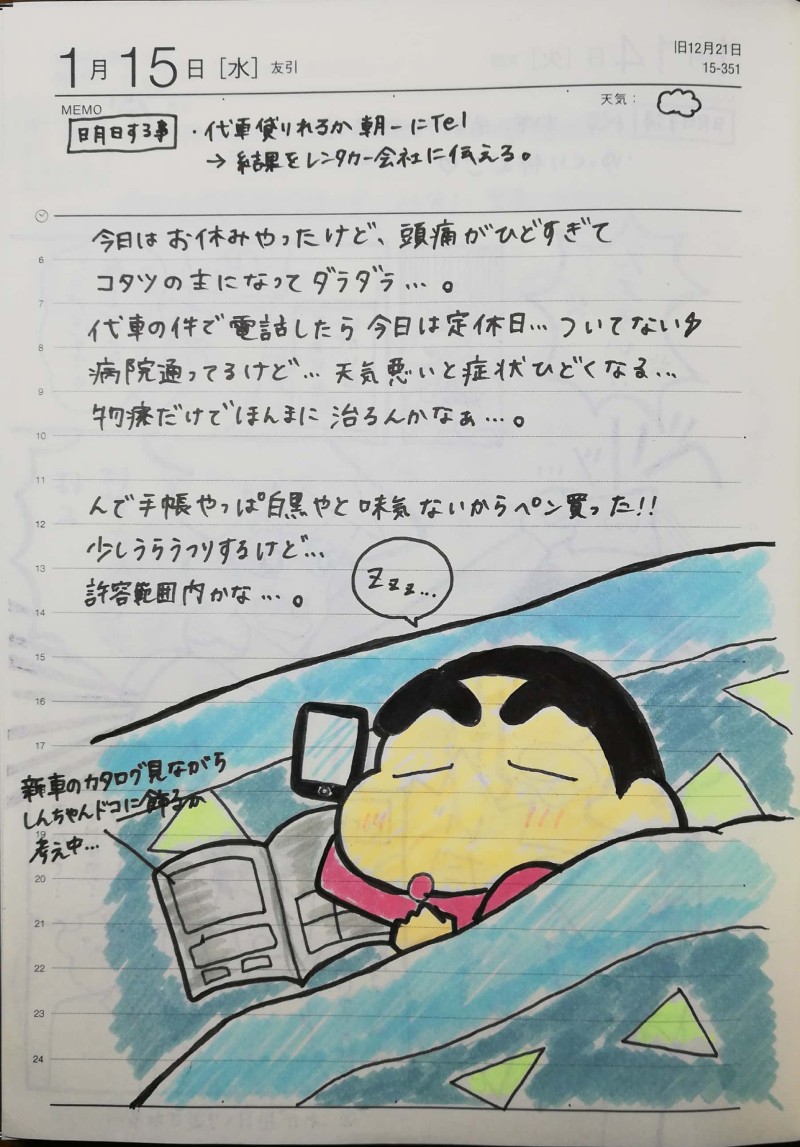 1月15日［水］友引
旧12月21日
15-351
MEMO
天気：
明日する事
・代車借りれるか朝一にTel
→ 結果をレンタカー会社に伝える。
今日はお休みやったけど、頭痛がひどすぎて
コタツの主になってダラダラ…。
代車の件で電話したら今日は定休日…ついてない
病院通ってるけど…天気悪いと症状ひどくなる…
物療だけでほんまに治るんかなぁ…。
んで手帳やっぱ白黒やと味気ないからペン買った!!
少しうらうつりするけど…
許容範囲内かな…。
Zzz…
新車のカタログ見ながら
しんちゃんドコに飾るか
考え中…
6
7
8
9
10
11
12
13
14
15
16
17
19
20
21
22
23
24